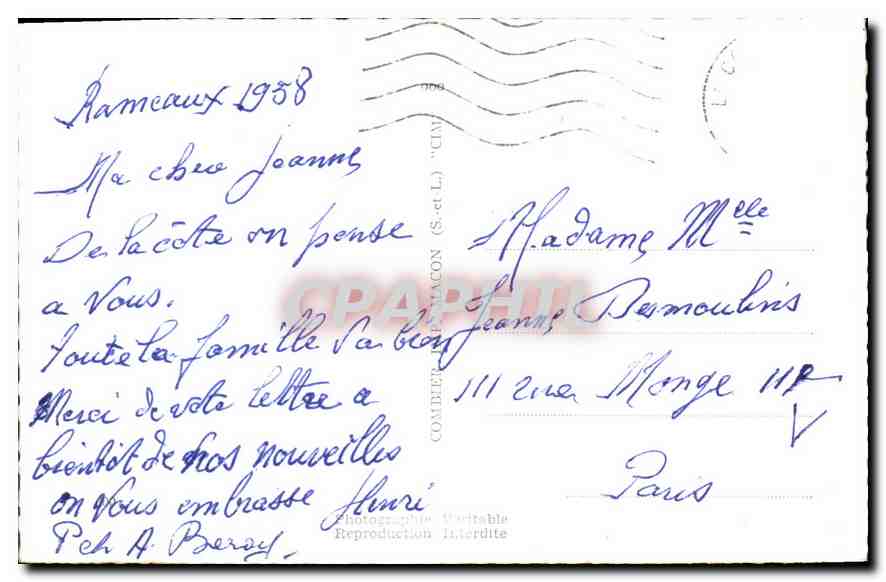 Rameaux 1958
Ma chere Jeanne,
De la côte on pense
a Vous.
toute la famille va bien
Merci de votre lettre a
bientôt de nos nouvelles
on Vous embrasse Henri
A.
Madame, Melle
Jeanne Desmoulins
111 rue Monge
Paris
COMBIER IMP. MACON (S.-et L.) "CIM
CPAPHIL
Photographie Véritable
Reproduction Interdite